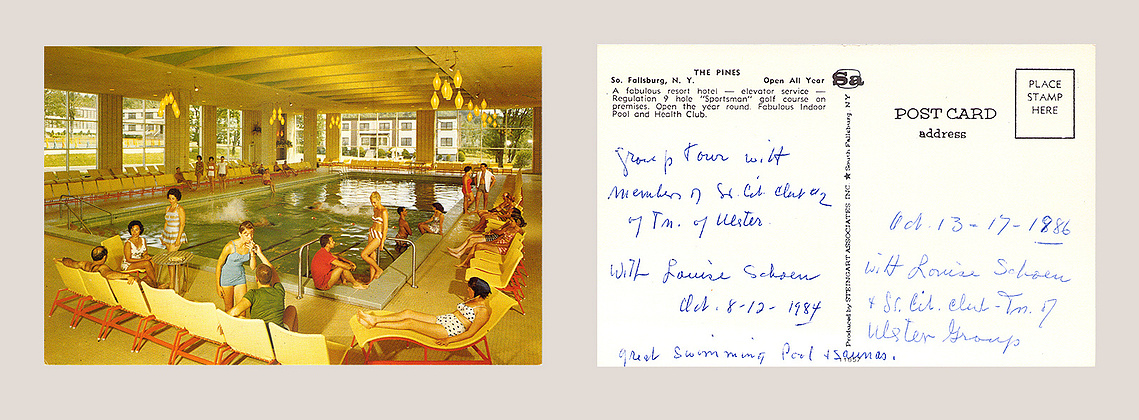 THE PINES
So. Fallsburg, N. Y. Open All Year
A fabulous resort hotel — elevator service —
Regulation 9 hole "Sportsman" golf course on
premises. Open the year round. Fabulous Indoor
Pool and Health Club.
Group Tour with
members of Sr. Cit. Club #2
of Tn. of Ulster.
With Louise Schoen
Oct. 8-12-1984
great Swimming Pool & Saunas.
Sa
Produced by STEINGART ASSOCIATES INC. ★ South Fallsburg NY
POST CARD
address
PLACE
STAMP
HERE
Oct. 13-17-1886
with Louise Schoen
& Sr. Cit. Club-Tn. of
Ulster Group